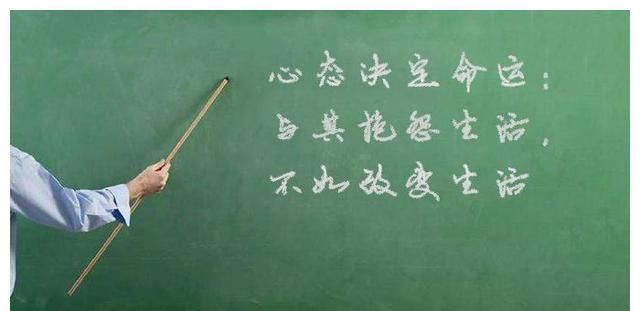 心态决定命运：
与其抱怨生活，
不如改变生活